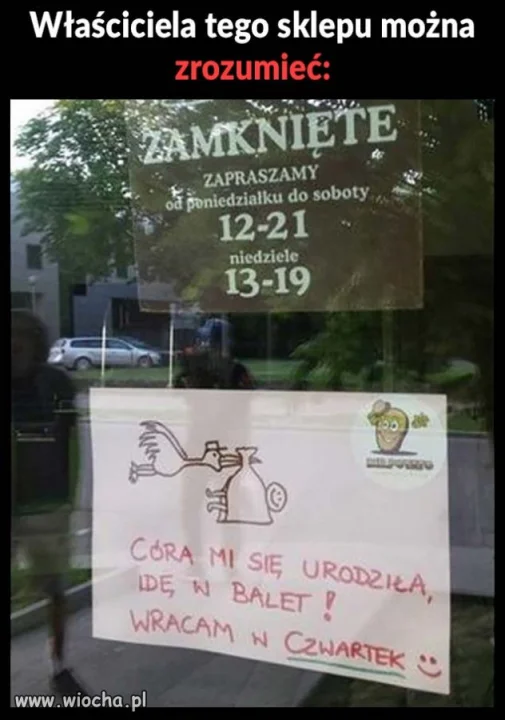 Właściciela tego sklepu można
zrozumieć:
ZAMKNIĘTE
ZAPRASZAMY
od poniedziałku do soboty
12-21
niedziele
13-19
CÓRA MI SIĘ URODZIŁA,
IDĘ W BALET!
WRACAM W CZWARTEK
www.wiocha.pl